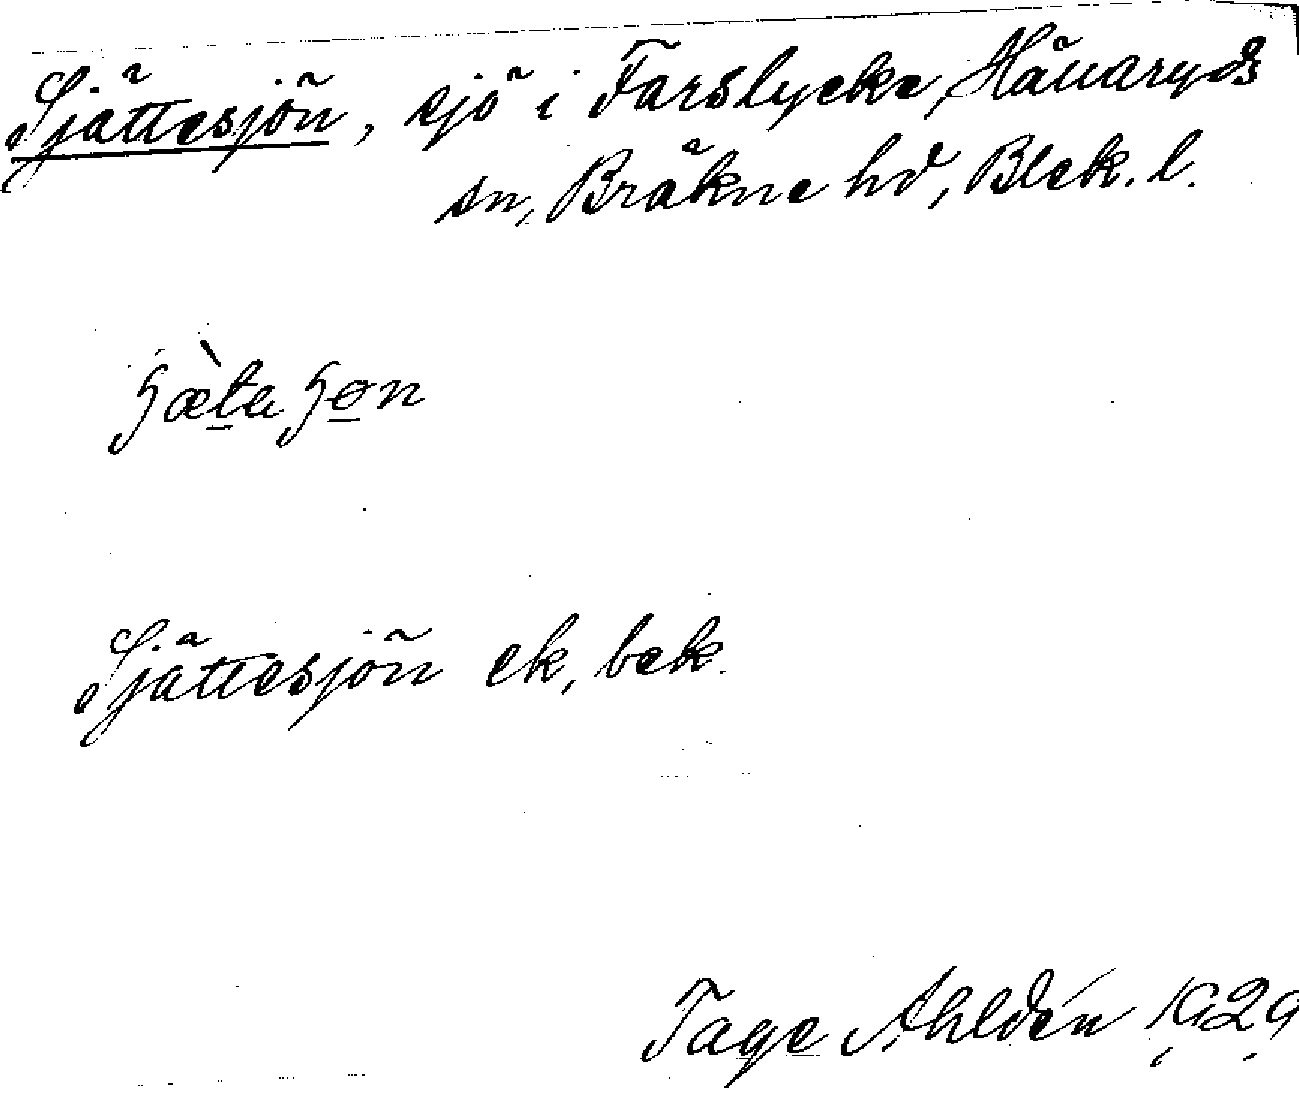 Sjättesjön, sjö i Farslycke, Hällaryds
sn, Bräkne hd, Blek. l.
ɧæ̀ta ɧøn
Sjättesjön ek, bek.
Tage Ahldén 1929